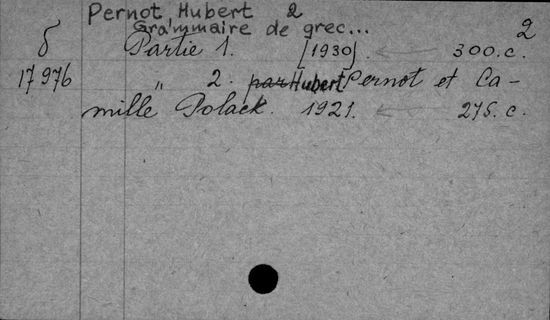 Pernot Hubert 2
Grammaire de grec... 2
δ Partie 1. [1930]. ← 300.c.
17976 " 2. par Hubert Pernot et Ca-
mille Polack. 1921. ← 275.c.